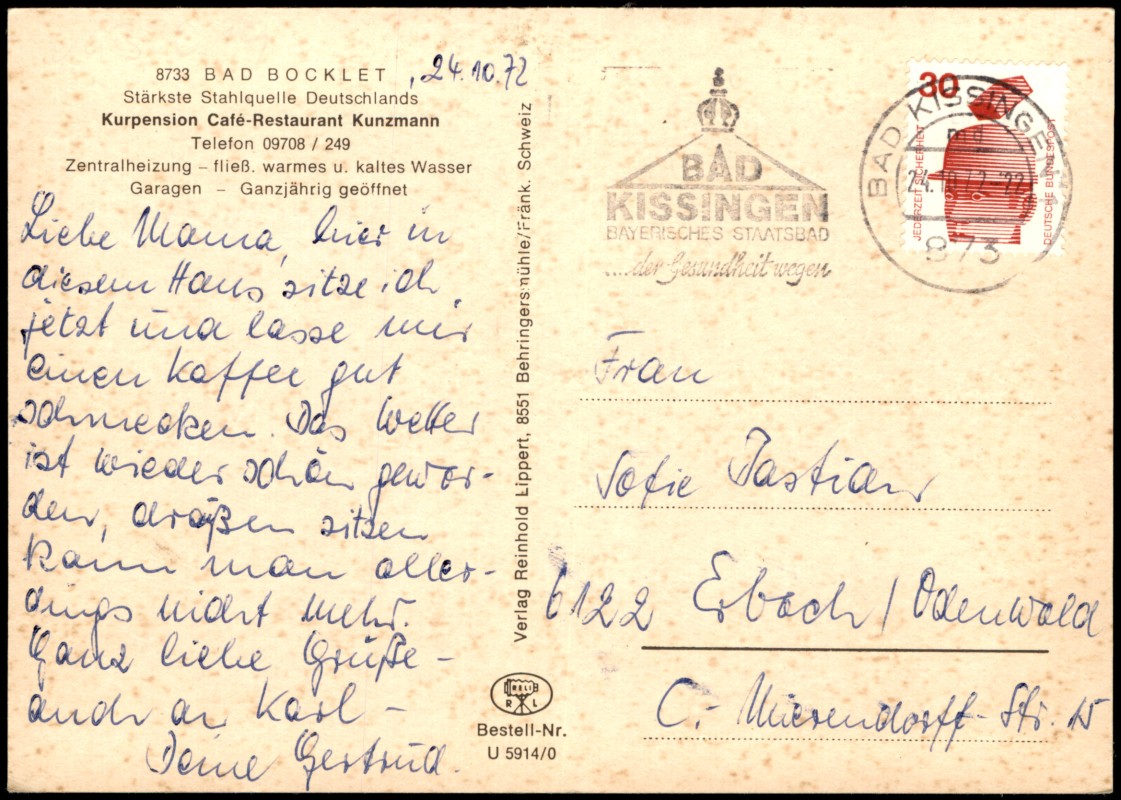 8733 BAD BOCKLET
Stärkste Stahlquelle Deutschlands
Kurpension Café-Restaurant Kunzmann
Telefon 09708 / 249
Zentralheizung – fließ. warmes u. kaltes Wasser
Garagen – Ganzjährig geöffnet
, 24.10.72
Liebe Mama, hier in
diesem Haus sitze ich
jetzt und lasse mir
einen Kaffee gut
schmecken. Das Wetter
ist wieder schön gewor-
den, draußen sitzen
kann man aller-
dings nicht mehr.
Ganz liebe Grüße –
auch an Karl –
Deine Gertrud.
Verlag Reinhold Lippert, 8551 Behringersmühle/Fränk. Schweiz
RELI
R L
Bestell-Nr.
U 5914/0
BAD
KISSINGEN
BAYERISCHES STAATSBAD
....der Gesundheit wegen
30
JEDERZEIT SICHERHEIT
DEUTSCHE BUNDESPOST
BAD KISSINGEN 1
24.10.72-22
873
Frau
Sofie Bastian
6122 Erbach / Odenwald
C.- Mierendorff-Str. 15